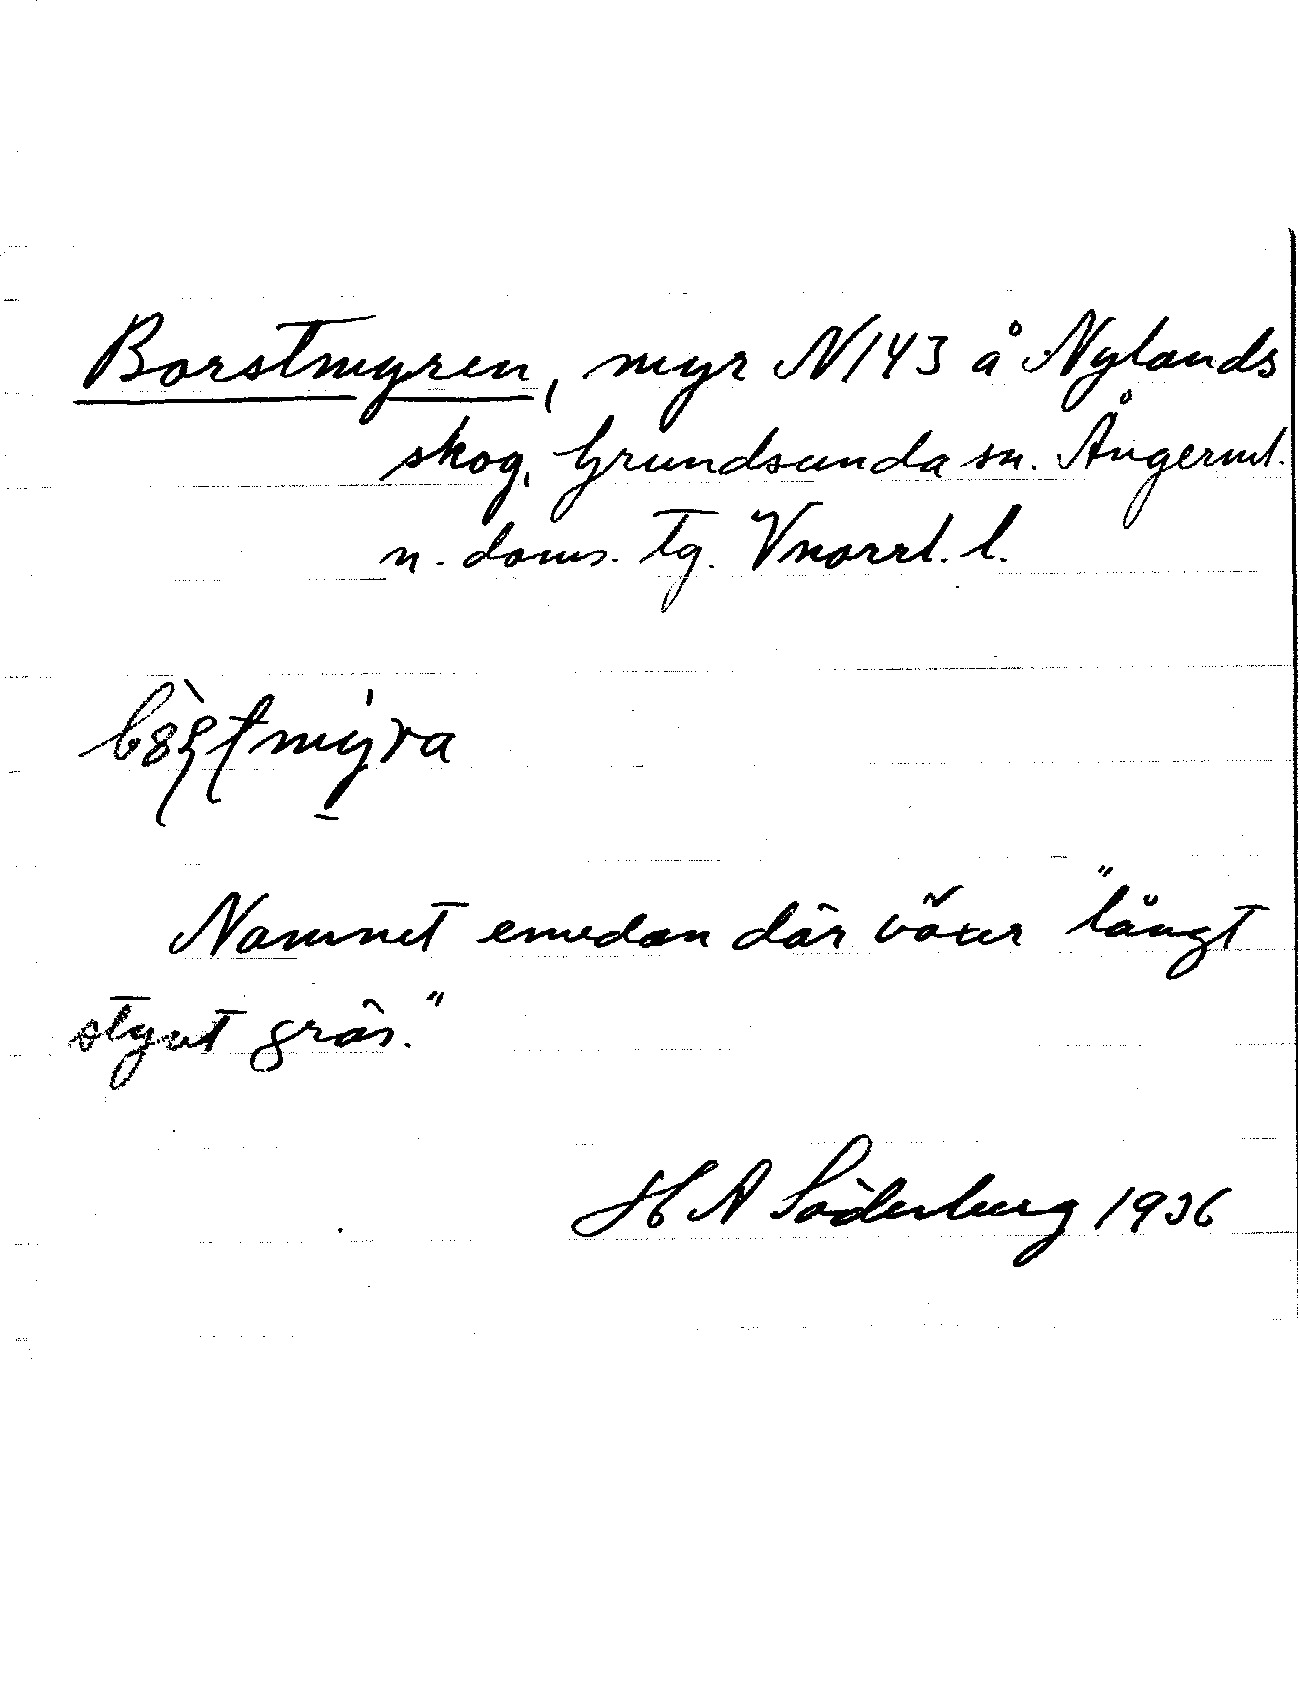 Borstmyren, myr N143 å Nylands
skog, Grundsunda sn. Ångerml.
n. doms. tg. Vnorrl. l.
Namnet emedan där växer "långt
styvt gräs."
H A Söderberg 1936